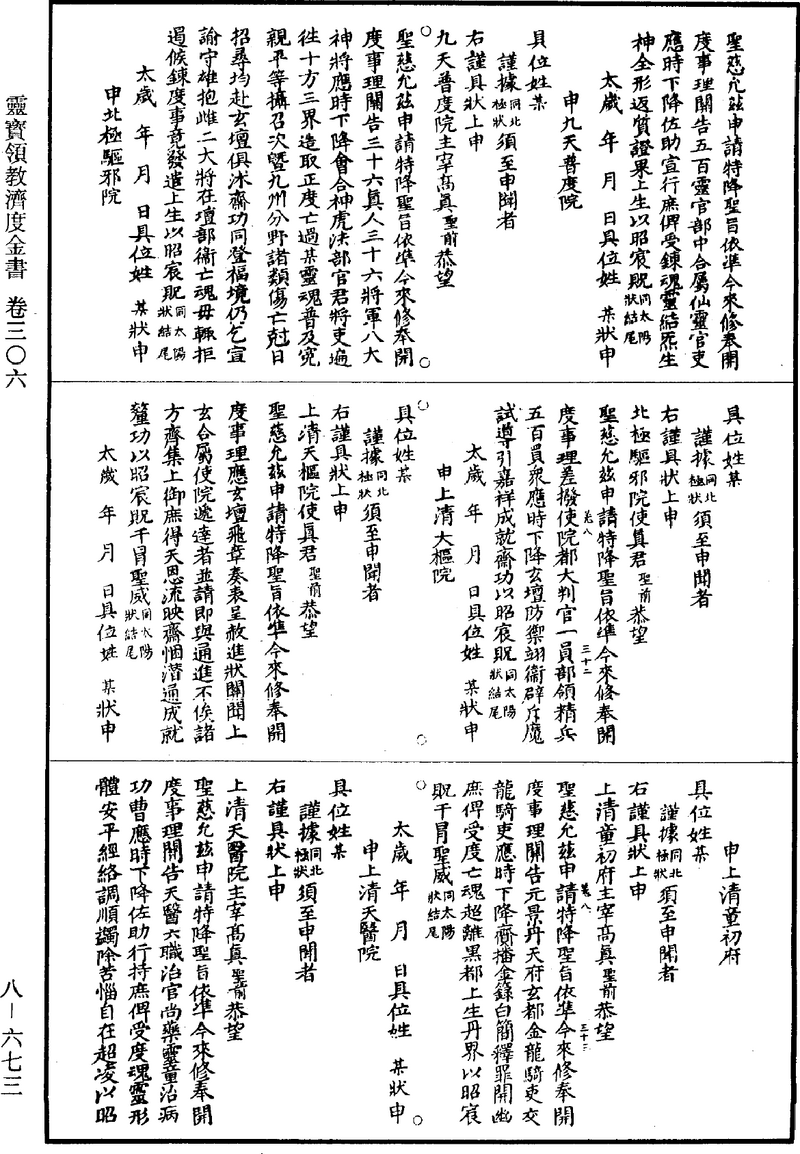 聖慈允玆申請特降聖旨依準今來修奉開
度事理關告五百靈官部中合屬仙靈官吏
應時下降佐助宣行庶俾受鍊魂靈結炁生
神全形返質證果上生以昭宸貺同太陽狀結尾
太歲 年 月 日具位姓 某狀申
申九天普度院
具位姓某
謹據同北極狀須至申聞者
右謹具狀上申
九天普度院主宰高真聖前恭望
聖慈允玆申請特降聖旨依準今來修奉開
度事理關告三十六真人三十六將軍八大
神將應時下降會合神虎法部官君將吏遍
往十方三界造取正度亡過某靈魂普及冤
親平等攝召次暨九州分野諸類傷亡尅日
招尋均赴玄壇俱沐齋功同登福境仍乞宣
諭守雄抱雌二大將在壇部衛亡魂毋輒拒
遏候鍊度事竟發遣上生以昭宸貺同太陽狀結尾
太歲 年 月 日具位姓 某狀申
申北極驅邪院
具位姓某
謹據同北極狀須至申聞者
右謹具狀上申
北極驅邪院使真君聖前恭望
聖慈允玆申請特降聖旨依準今來修奉開
度事理差撥使院都大判官一員部領精兵
五百員衆應時下降玄壇防禦翊衛辟斥魔
試導引嘉祥成就齋功以昭宸貺同太陽狀結尾
太歲 年 月 日具位姓 某狀申
申上清大樞院
具位姓某
謹據同北極狀須至申聞者
右謹具狀上申
上清天樞院使真君聖前恭望
聖慈允玆申請特降聖旨依準今來修奉開
度事理應玄壇飛章奏表呈赦進狀關聞上
玄合屬使院遞達者並請即與通進不俟諸
方齊集上御庶得天恩流映齋悃潛通成就
釐功以昭宸貺干冒聖威同太陽狀結尾
太歲 年 月 日具位姓 某狀申
申上清童初府
具位姓某
謹據同北極狀須至申聞者
右謹具狀上申
上清童初府主宰高真聖前恭望
聖慈允玆申請特降聖旨依準今來修奉開
度事理關告元景丹天府玄都金龍騎吏交
龍騎吏應時下降齎播金籙白簡釋罪開幽
庶俾受度亡魂超離黑都上生丹界以昭宸
貺干冒聖威同太陽狀結尾
太歲 年 月 日具位姓 某狀申
申上清天醫院
具位姓某
謹據同北極狀須至申聞者
右謹具狀上申
上清天醫院主宰高真聖前恭望
聖慈允玆申請特降聖旨依準今來修奉開
度事理關告天醫六職治官尚藥靈童治病
功曹應時下降佐助行持庶俾受度魂靈形
體安平經絡調順蠲除苦惱自在超凌以昭
靈寶領教濟度金書 卷三〇六
八－六七三